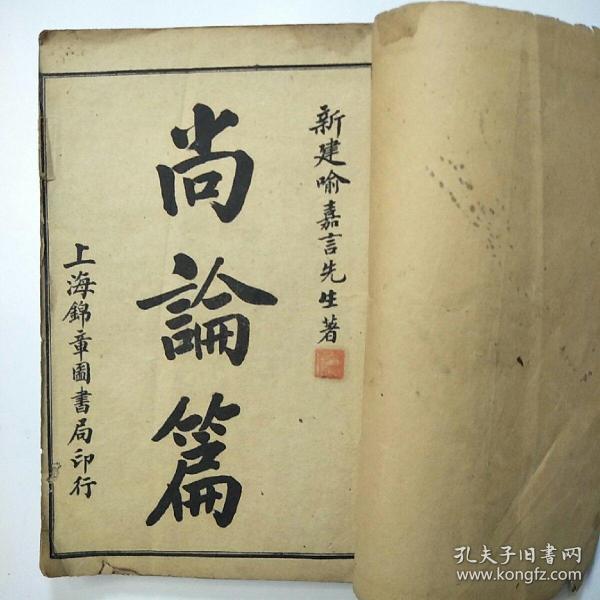 新建喻嘉言先生著
尚論篇
上海錦章圖書局印行
孔夫子旧书网
www.kongfz.com